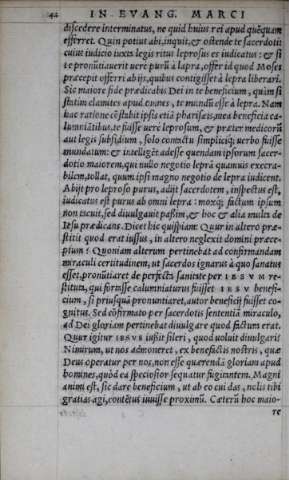 42 IN EVANG. MARCI
discedere interminatus, ne quid huius rei apud quẽquam
efferret. Quin potius abi, inquit, & ostende te sacerdoti:
cuius iudicio iuxta legis ritus leprosus es iudicatus: & si
te pronũtiauerit uere purũ à lepra, offer id quod Moses
præcepit offerri ab ijs, quibus contigisset à lepra liberari.
Sic maiore fide prædicabis Dei in te beneficium, quàm si
statim clamites apud omnes, te mundũ esse à lepra. Nam
hac ratione cõstabit ipsis etiã pharisæis, mea beneficia ca-
lumniãtibus, te fuisse uere leprosum, & præter medicorũ
aut legis subsidium, solo contactu simpliciq; uerbo fuisse
mundatum: & intelligẽt adesse quendam ipsorum sacer-
dotio maiorem, qui nullo negotio leprã quamuis execra-
bilem, tollat, quum ipsi magno negotio de lepra iudicent.
Abijt pro leproso purus, adijt sacerdotem, inspectus est,
iudicatus est purus ab omni lepra: moxq; factum ipsum
non tacuit, sed diuulgauit passim, & hoc & alia multa de
Iesu prædicans. Dicet hic quispiam: Quur in altero præ-
stitit quod erat iussus, in altero neglexit domini præce-
ptum? Quoniam alterum pertinebat ad confirmandam
miraculi certitudinem, ut sacerdos ignarus à quo sanatus
esset, pronũtiaret de perfecta sanitate per IESVM re-
stituta, qui fortasse calumniaturus fuisset IESV benefi-
cium, si priusquã pronuntiaret, autor beneficij fuisset co-
gnitus. Sed cõfirmato per sacerdotis sententiã miraculo,
ad Dei gloriam pertinebat diuulgare quod factum erat.
Quur igitur IESVS iussit sileri, quod uoluit diuulgari?
Nimirum, ut nos admoneret, ex benefactis nostris, quæ
Deus operatur per nos, non esse quærendã gloriam apud
homines, quòd ea speciosior sequatur fugientem. Magni
animi est, sic dare beneficium, ut ab eo cui das, nolis tibi
gratias agi, contẽtus iuuisse proximũ. Cæterũ hoc maio-
re